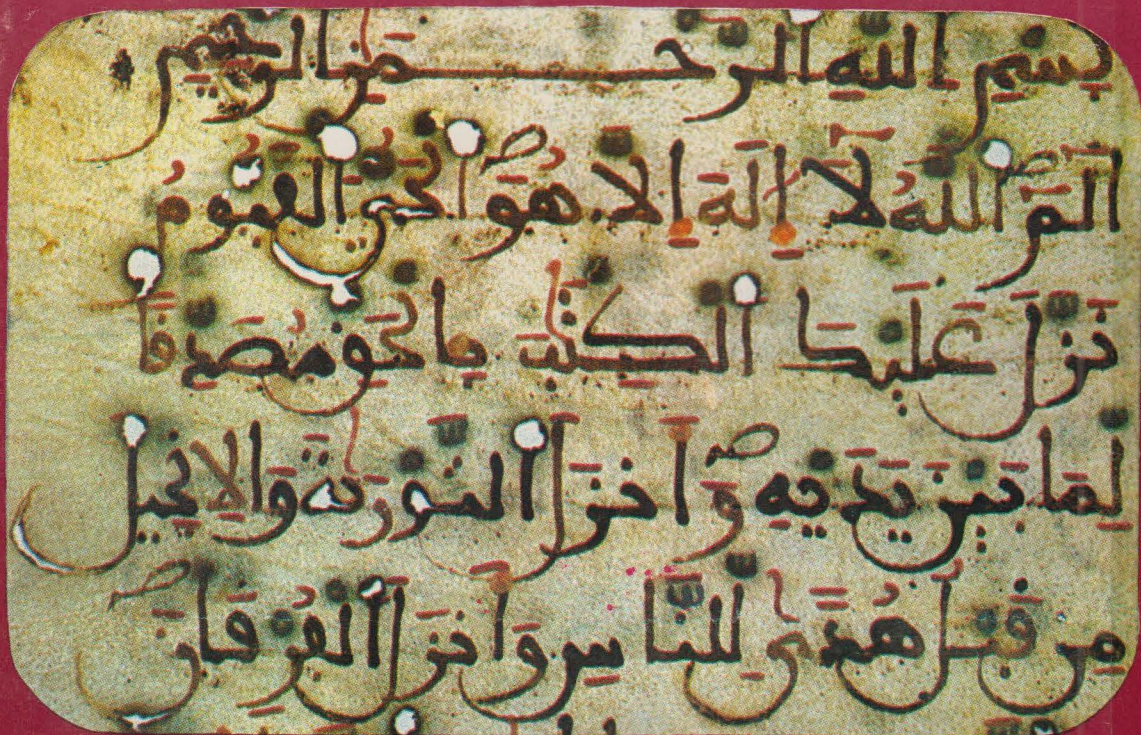 بِسْمِ اللَّهِ الرَّحْمَٰنِ الرَّحِيمِ
الٓمٓ اللَّهُ لَآ إِلَٰهَ إِلَّا هُوَ الْحَيُّ الْقَيُّومُ
نَزَّلَ عَلَيْكَ الْكِتَٰبَ بِالْحَقِّ مُصَدِّقًا
لِّمَا بَيْنَ يَدَيْهِ وَأَنزَلَ التَّوْرَىٰةَ وَالْإِنجِيلَ
مِن قَبْلُ هُدًى لِّلنَّاسِ وَأَنزَلَ الْفُرْقَانَ